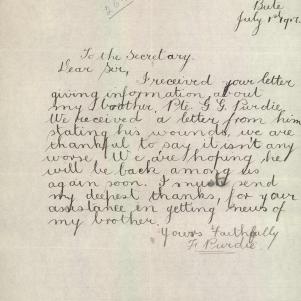 Bute
July 1st 191
To the Secretary.
Dear Sir,
I received your letter
giving information about
my brother, Pte. G. G. Purdie.
We received a letter from him
stating his wounds, we are
thankful to say it isn't any
worse, We are hoping he
will be back among us
again soon. I must send
my deepest thanks, for your
assistance in getting news of
my brother.
Yours Faithfully
F. Purdie